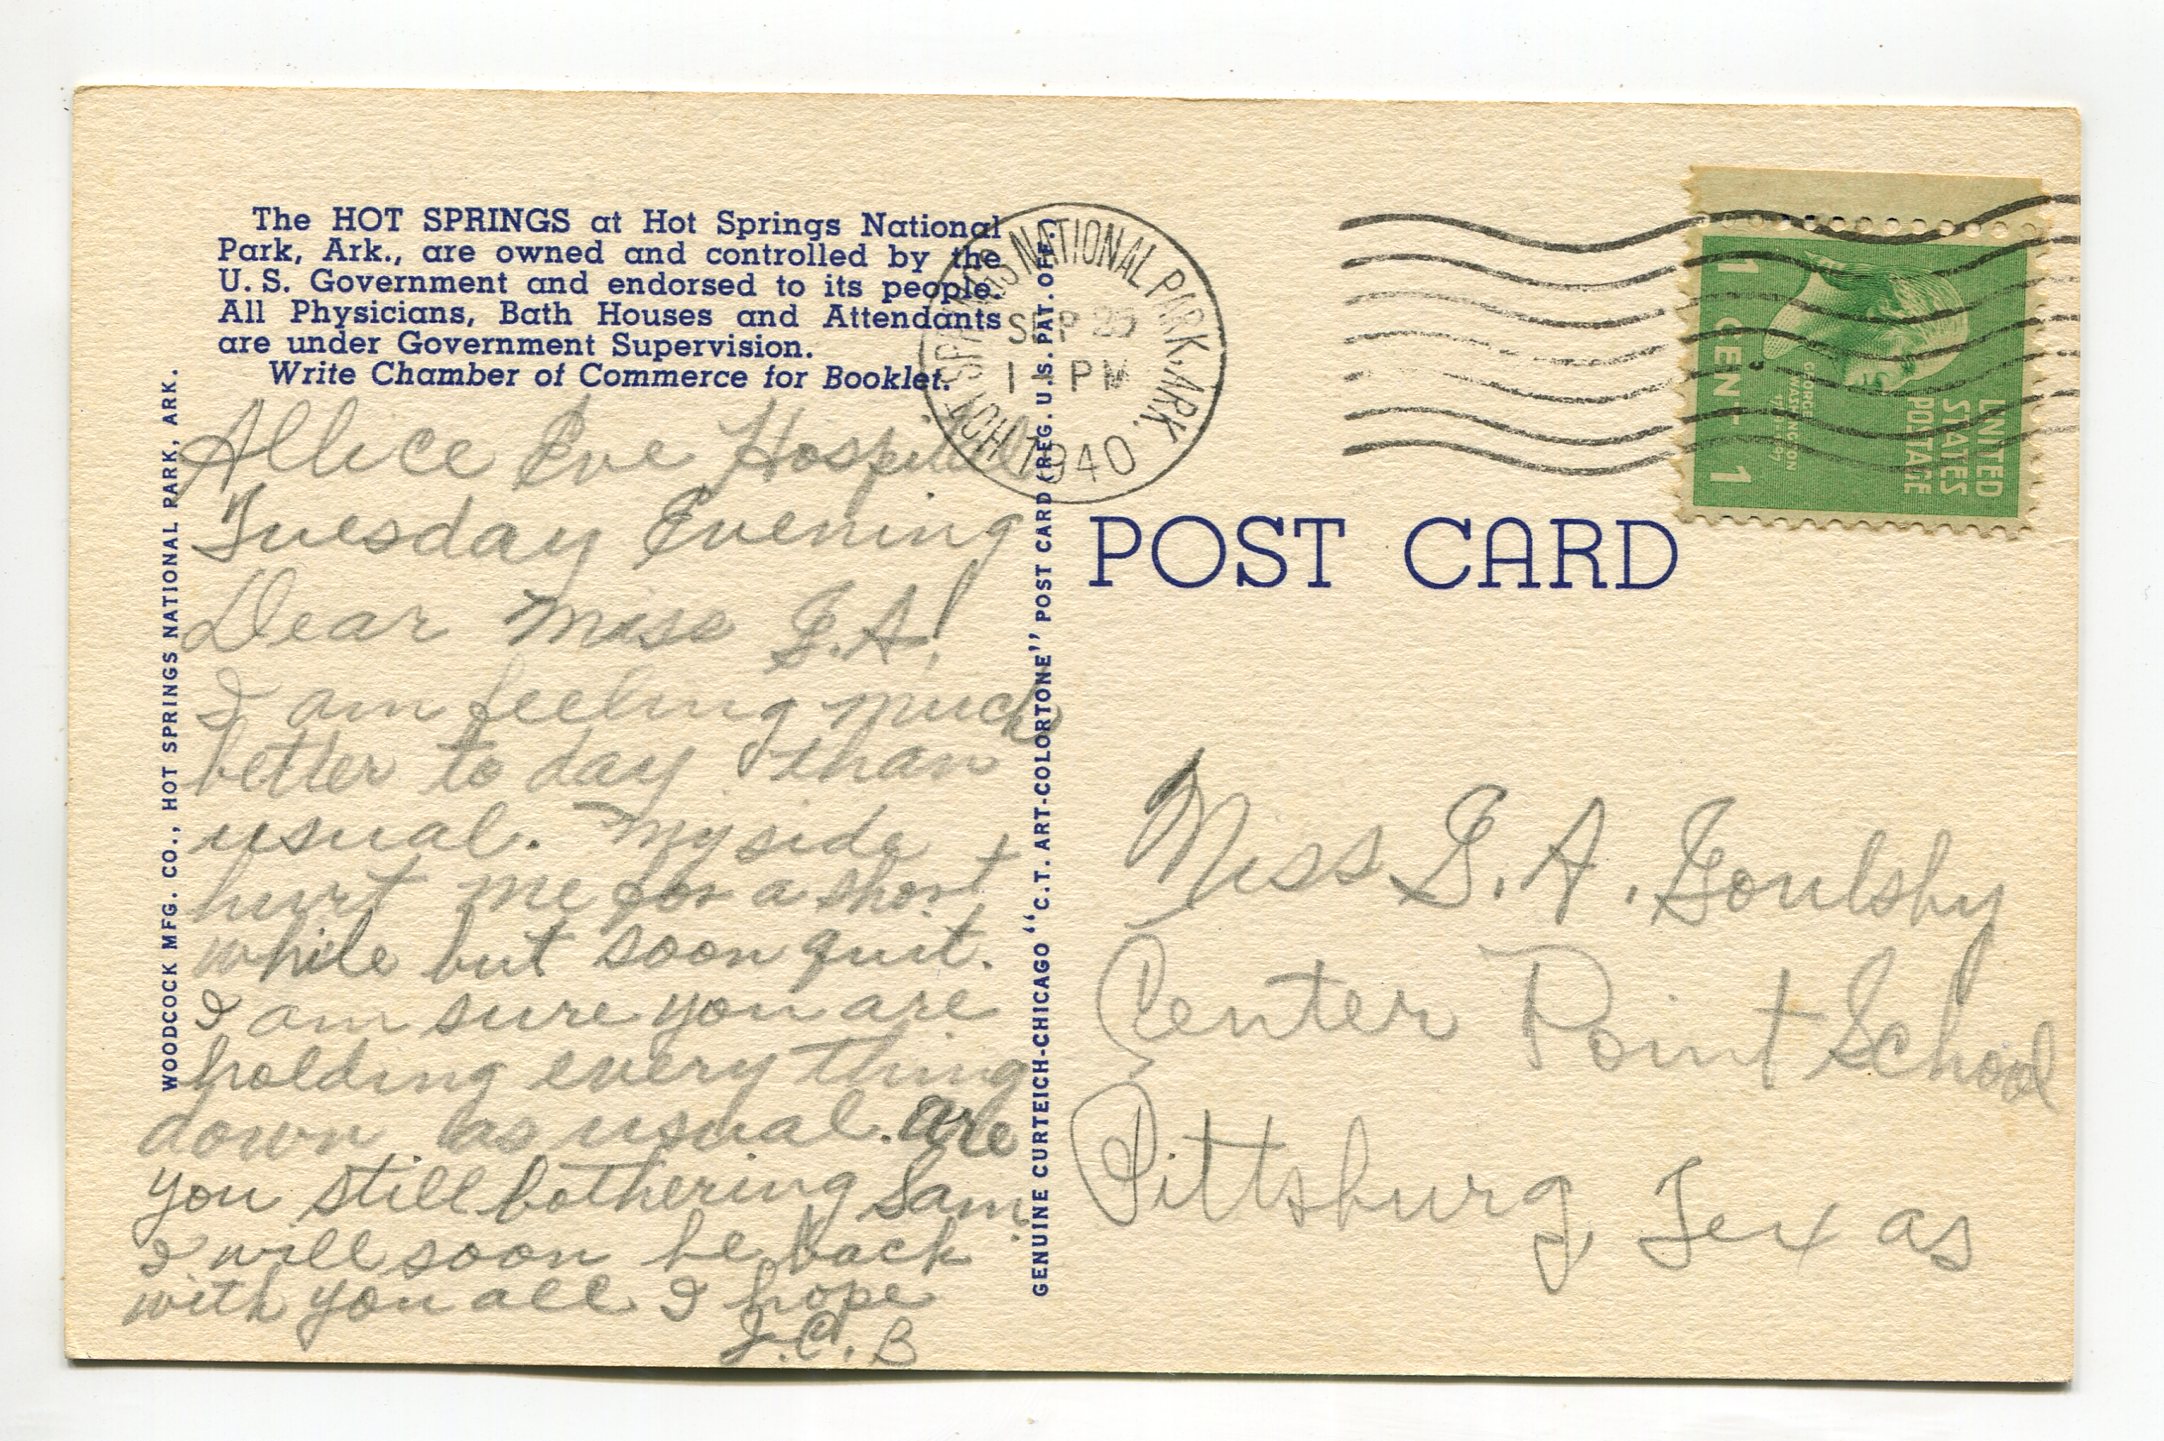 The HOT SPRINGS at Hot Springs National
Park, Ark., are owned and controlled by the
U. S. Government and endorsed to its people.
All Physicians, Bath Houses and Attendants
are under Government Supervision.
Write Chamber of Commerce for Booklet.
WOODCOCK MFG. CO., HOT SPRINGS NATIONAL PARK, ARK.
Allice Eve Hospital
Tuesday Evening
Dear Miss G.A!
I am feeling much
better to day than
usual. My side
hurt me for a short
while but soon quit.
I am sure you are
holding every thing
down as usual. are
you still bothering Sam.
I will soon be back
with you all I hope
J.C.B
GENUINE CURTEICH-CHICAGO "C.T. ART-COLORTONE" POST CARD (REG. U.S. PAT. OFF.)
HOT SPRINGS NATIONAL PARK, ARK.
SEP
PM
1940
UNITED
STATES
POSTAGE
GEORGE
WASHINGTON
1 CENT 1
POST CARD
Miss G. A. Goulsby
Center Point School
Pittsburg, Texas